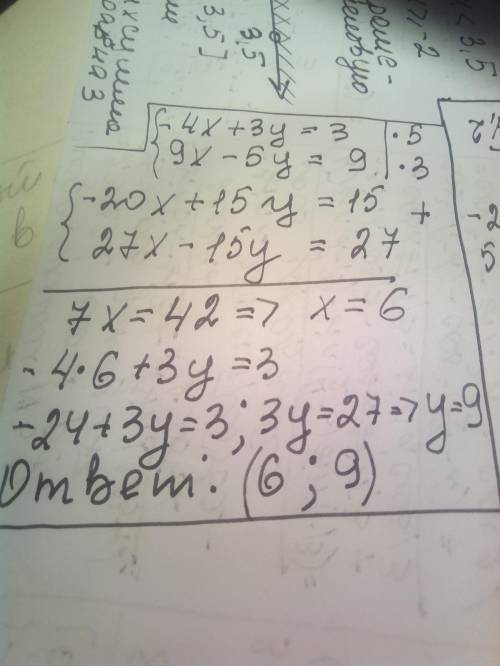 {-4x+3y=3 |·5
{9x-5y=9 |·3
{-20x+15y=15 +
{27x-15y=27
7x=42=> x=6
-4·6+3y=3
-24+3y=3; 3y=27=>y=9
Ответ: (6; 9)
3,5
3,5]
-2